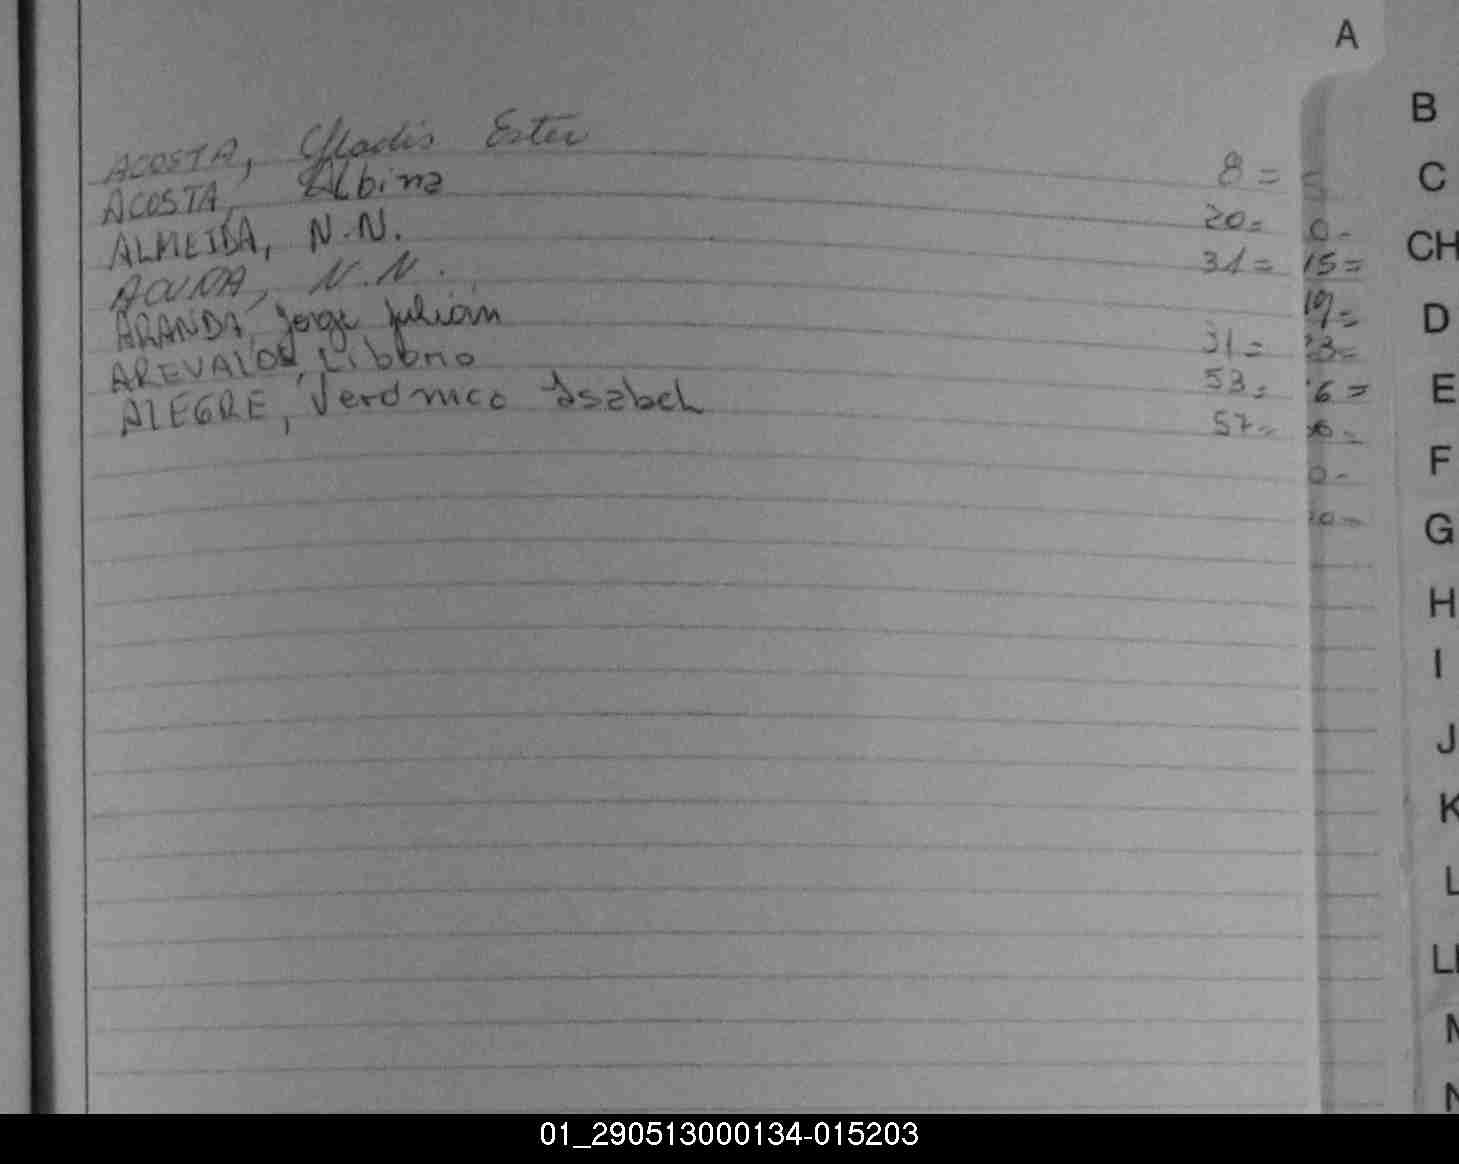 A
ACOSTA, Gladis Ester 8=
ACOSTA, Albina 20=
ALMEIDA, N.N. 31=
ACUÑA, N.N.
ARANDA, Jorge Julián 31=
AREVALOS, Liborio 53=
ALEGRE, Verónica Isabel 57=
0-
15=
19=
23=
6=
0-
B
C
CH
D
E
F
G
H
I
J
K
L
LL
M
N
01_290513000134-015203